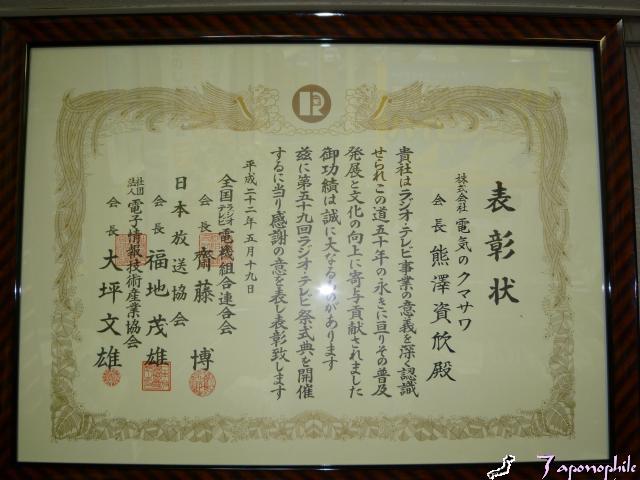 表彰状
株式会社 電気のクマサワ
会長 熊澤資欣殿
貴社はラジオ・テレビ事業の意義を深く認識
せられこの道五十年の永きに亘りその普及
発展と文化の向上に寄与貢献されました
御功績は誠に大なるものがあります
茲に第五十九回ラジオ・テレビ祭式典を開催
するに当り感謝の意を表し表彰致します
平成二十二年五月十九日
全国ラジオテレビ電機組合連合会
会長 齋藤 博
日本放送協会
会長 福地茂雄
社団法人 電子情報技術産業協会
会長 大坪文雄
Japonophile